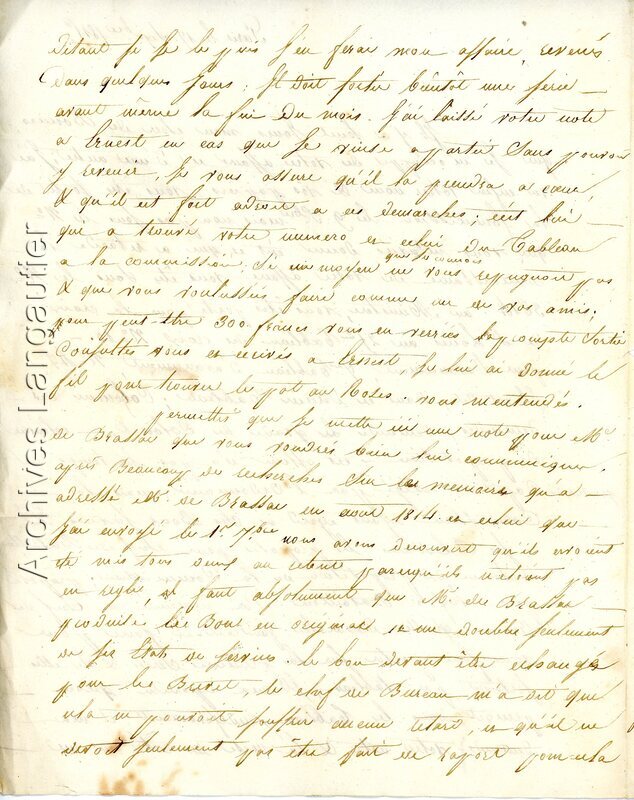 ditant je si le puis j'en ferai mon affaire, revenés
Dans quelques jours; Il doit sortir bientôt une serie
avant même la fin du mois. J'ai laissé votre note
a Ernest en cas que je vinse a partir sans pouvoir
y revenir, je vous assure qu'il la prendra a coeur
& qu'il est fort adroit a ces demarches; c'est lui
qui a trouvé votre numero et celui du Tableau
a la commission; si un moyen que je connois ne vous repugnoit pas
& que vous voulussiés faire comme un de vos amis.
pour peut-être 300 francs vous en verriés la prompte sortie
Consultés vous et ecrivés a Ernest, je lui ai donné le
fil pour trouver le pot au Roses. vous m'entendés.
permettés que je mette ici une note pour Mr
de Brassac que vous voudrés bien lui communiquer.
après Beaucoup de recherches sur les memoires qu'a
adressé Mr. de Brassac en aout 1814. et celui que
j'ai envoyé le 1r 7bre nous avons decouvert qu'ils avoient
été mis tous deux au rebut parcequ'ils n'etoient pas
en regle, il faut absolument que Mr. de Brassac
produise les Bon en original et un double seulement
de ses Etats de services. le bon devant être echangés
pour les Brevet, le chef de Bureau m'a dit que
cela ne pouvoit souffrir aucun retard, et qu'il ne
devoit seulement pas être fait de raport pour cela
Archives Langautier